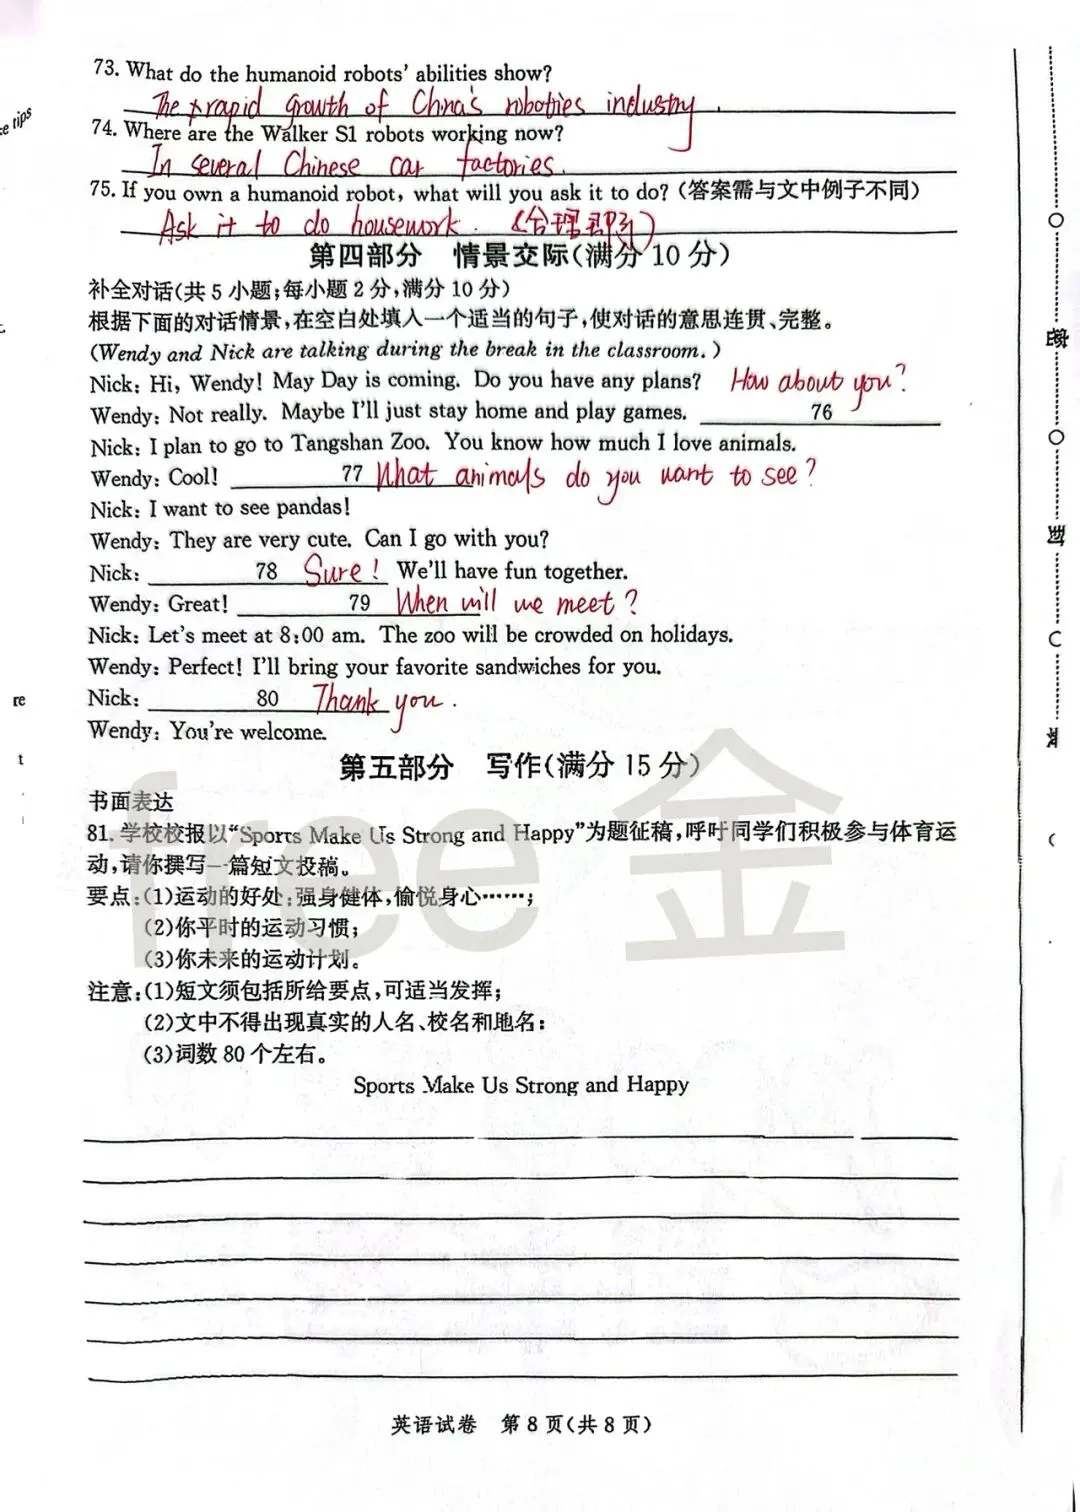 e tips
73. What do the humanoid robots' abilities show?
The rapid growth of China's robotics industry.
74. Where are the Walker S1 robots working now?
In several Chinese car factories.
75. If you own a humanoid robot, what will you ask it to do? (答案需与文中例子不同)
Ask it to do housework. (合理即可)
第四部分 情景交际(满分 10 分)
补全对话(共 5 小题;每小题 2 分,满分 10 分)
根据下面的对话情景,在空白处填入一个适当的句子,使对话的意思连贯、完整。
(Wendy and Nick are talking during the break in the classroom.)
Nick: Hi, Wendy! May Day is coming. Do you have any plans? How about you?
Wendy: Not really. Maybe I'll just stay home and play games. 76
Nick: I plan to go to Tangshan Zoo. You know how much I love animals.
Wendy: Cool! 77 What animals do you want to see?
Nick: I want to see pandas!
Wendy: They are very cute. Can I go with you?
Nick: 78 Sure! We'll have fun together.
Wendy: Great! 79 When will we meet?
Nick: Let's meet at 8:00 am. The zoo will be crowded on holidays.
Wendy: Perfect! I'll bring your favorite sandwiches for you.
re
Nick: 80 Thank you.
t
Wendy: You're welcome.
第五部分 写作(满分 15 分)
书面表达
81. 学校校报以“Sports Make Us Strong and Happy”为题征稿,呼吁同学们积极参与体育运
动,请你撰写一篇短文投稿。
要点:(1)运动的好处:强身健体,愉悦身心……;
(2)你平时的运动习惯;
(3)你未来的运动计划。
注意:(1)短文须包括所给要点,可适当发挥;
(2)文中不得出现真实的人名、校名和地名:
(3)词数 80 个左右。
Sports Make Us Strong and Happy
英语试卷 第 8 页(共 8 页)
free 金
密
封